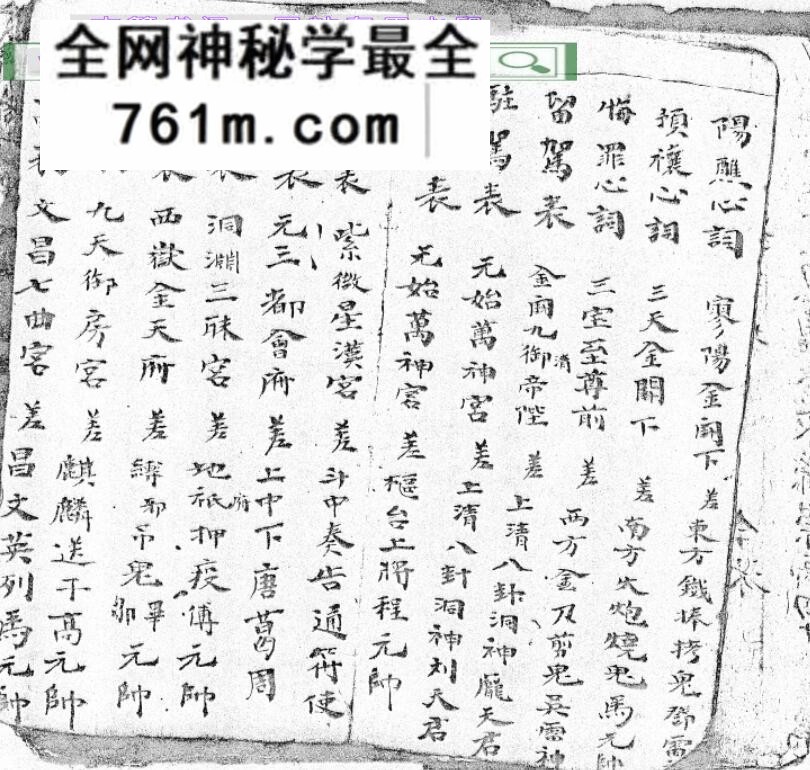 全网神秘学最全
761m.com
陽醮心詞 寥陽金闕下 差 東方鐵棒拷鬼鄧雷
預禳心詞 三天金闕下 差 南方火炮燒鬼馬元帥
悔罪心詞 三宝至尊前 差 西方金刀剪鬼吴雷神
留駕表 金闕九御帝陛 差 上清八卦洞神龐天君
駐駕表 元始萬神宮 差 上清八卦洞神刘天君
表 元始萬神宮 差 樞台上將程元帥
表 紫微星漢宮 差 斗中奏告通符使
表 元三都會府 差 上中下唐葛周
表 洞淵三昧宮 差 地祇押疫傅元帥
表 西嶽金天府 差 吊鬼 元帥
九天御房宮 差 麒麟送子高元帥
表 文昌七曲宮 差 昌文英列馬元帥